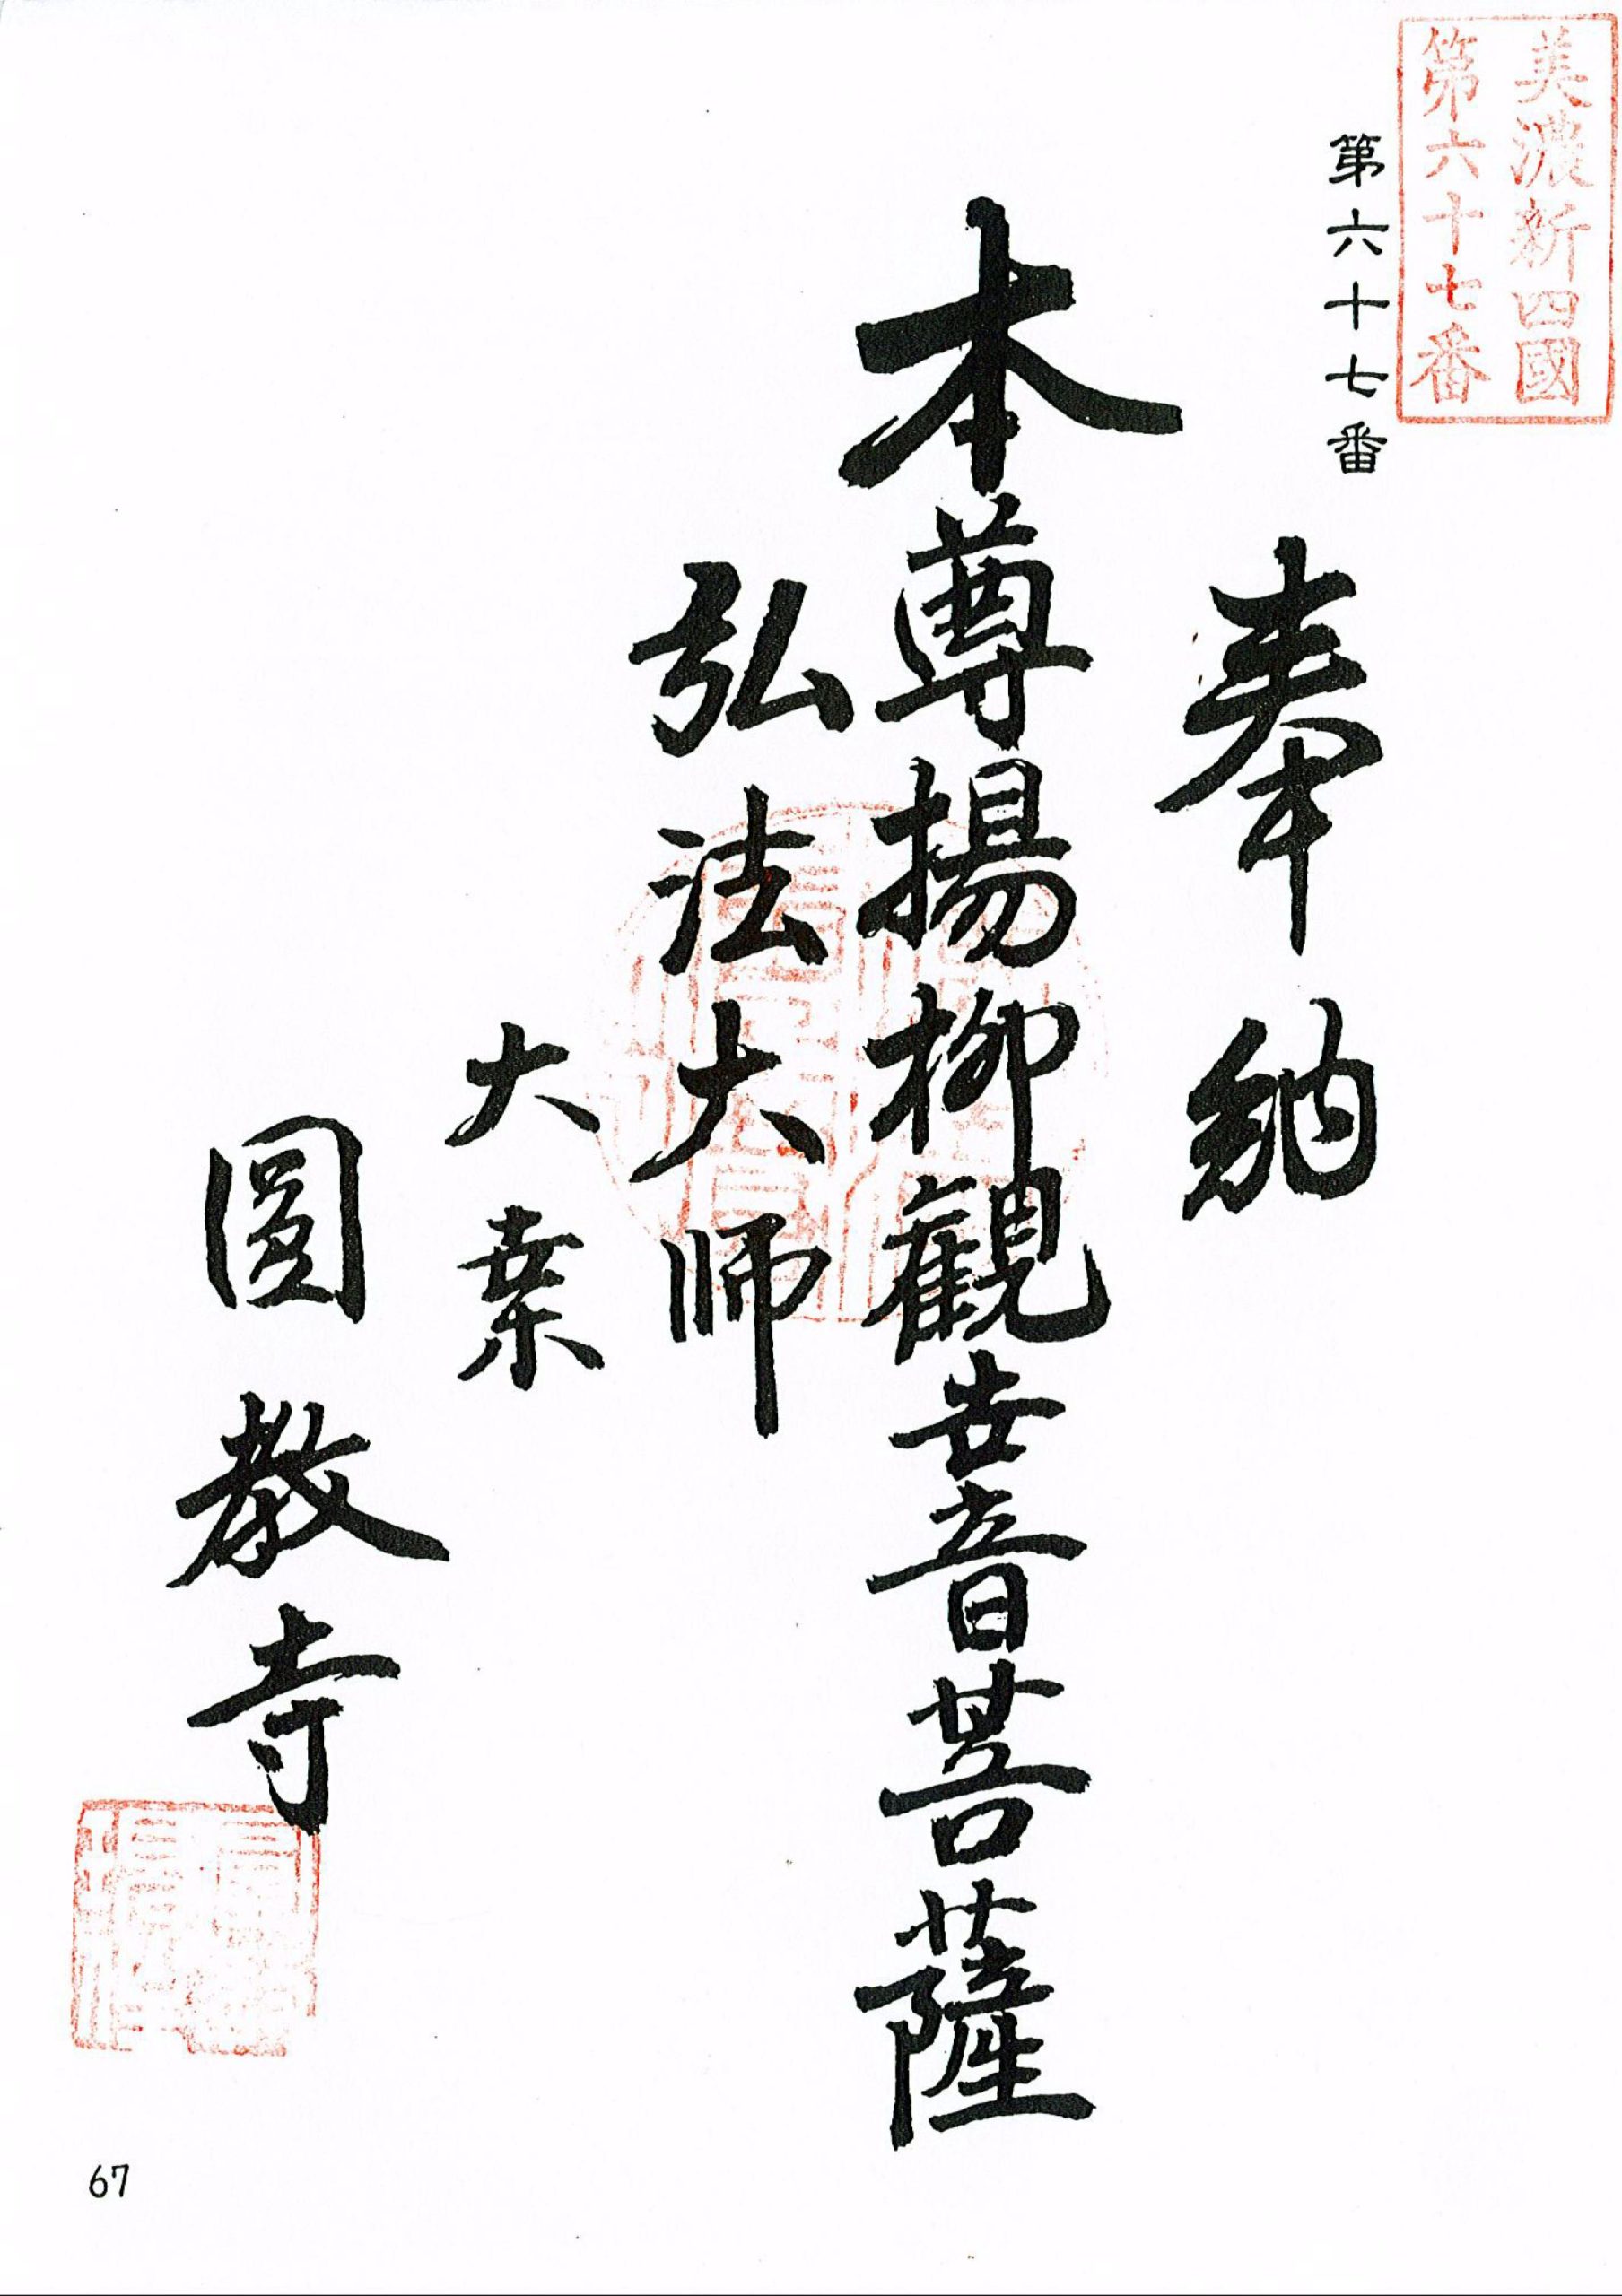 美濃新四國
第六十七番
第六十七番
奉納
本尊揚柳観世音菩薩
弘法大師
大桒
圓教寺
67